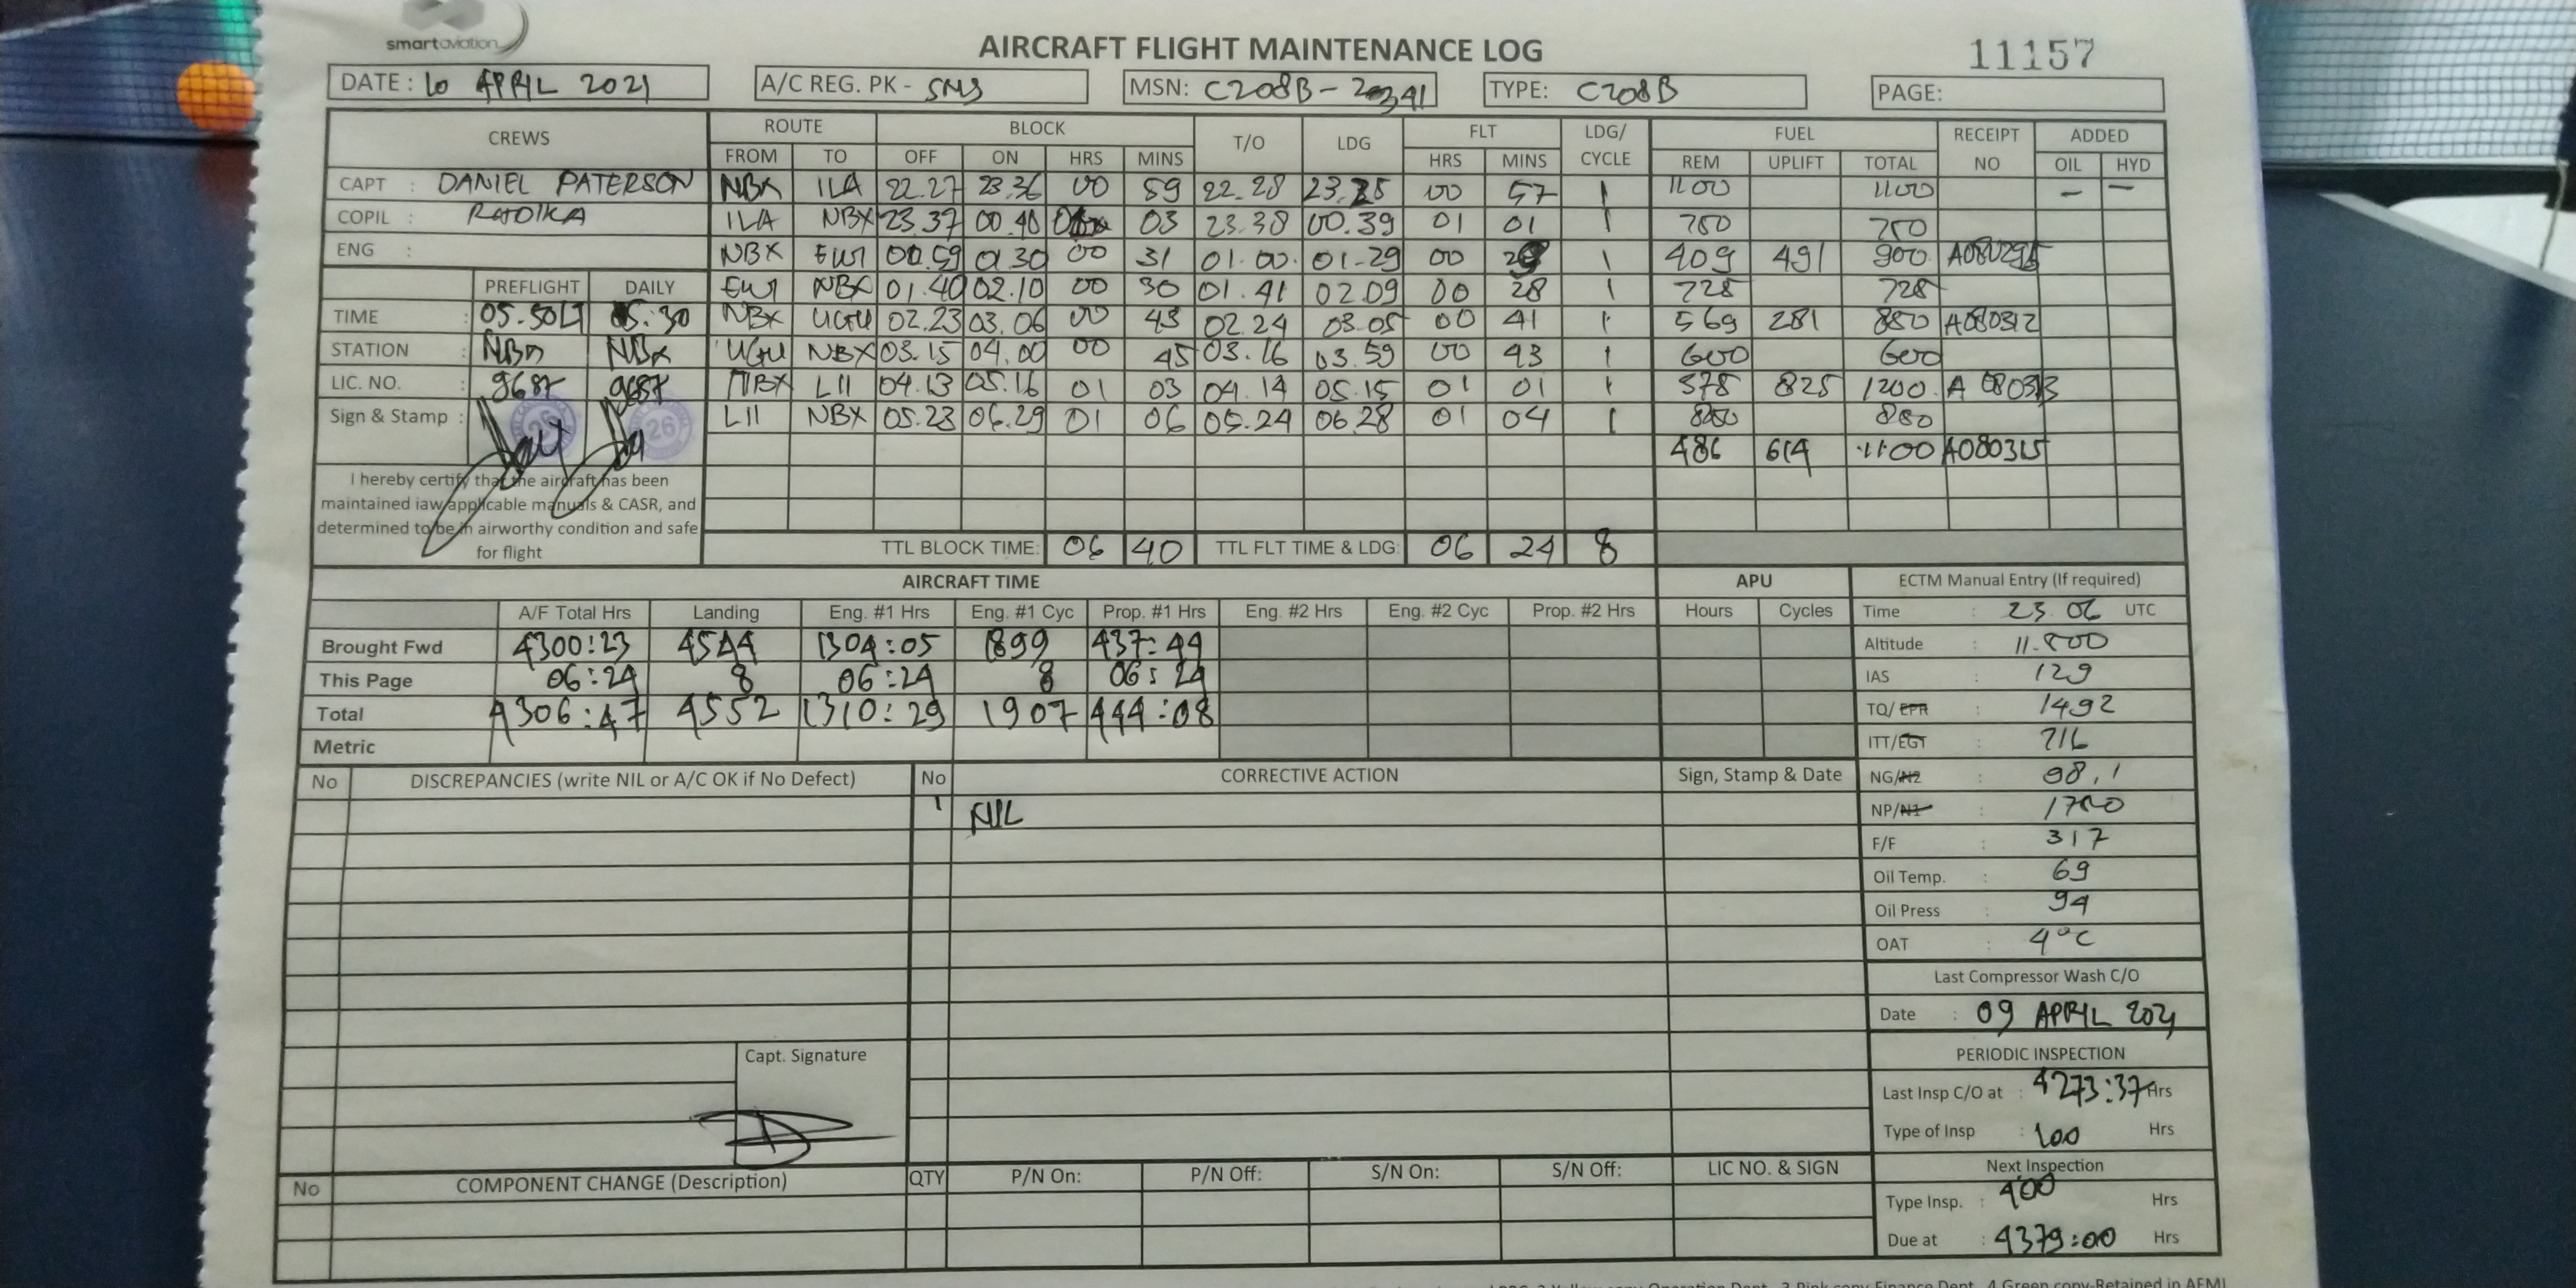 smartaviation
AIRCRAFT FLIGHT MAINTENANCE LOG
11157
DATE : 10 APRIL 2021
A/C REG. PK - SNS
MSN: C208B -
TYPE: C208B
PAGE:
CREWS ROUTE BLOCK T/O LDG FLT LDG/ CYCLE FUEL RECEIPT NO ADDED
FROM TO OFF ON HRS MINS HRS MINS REM UPLIFT TOTAL OIL HYD
CAPT : DANIEL PATERSON NBX ILA 22.27 23.36 00 59 22.28 00 57 1 1100 1100 – –
COPIL : RADIKA ILA NBX 23.37 00.40 03 23.38 00.39 01 01 1 750 750
ENG : NBX EWI 00.59 01.30 00 31 01.00 01-29 00 1 409 491 900
PREFLIGHT DAILY EWI NBX 01.40 02.10 00 30 01.41 02.09 00 28 1 728 728
TIME : 05.50LT 05:30 NBX UGU 02.23 03.06 00 43 02.24 03.05 00 41 1 569 281 850 A080312
STATION : NBX NBX UGU NBX 03.15 04.00 00 45 03.16 03.59 00 43 1 600 600
LIC. NO. : 9687 9687 NBX LII 04.13 05.16 01 03 04.14 05.15 01 01 1 375 825 1200 A 080313
Sign & Stamp : LII NBX 05.23 06.29 01 06 05.24 06.28 01 04 1 850 850
486 614 1100 A080315
I hereby certify that the aircraft has been
maintained iaw applicable manuals & CASR, and
determined to be in airworthy condition and safe
for flight
TTL BLOCK TIME: 06 40 TTL FLT TIME & LDG: 06 24 8
AIRCRAFT TIME APU ECTM Manual Entry (If required)
A/F Total Hrs Landing Eng. #1 Hrs Eng. #1 Cyc Prop. #1 Hrs Eng. #2 Hrs Eng. #2 Cyc Prop. #2 Hrs Hours Cycles
Brought Fwd 4300:23 4544 1304:05 1899 437:44
This Page 06:24 8 06:24 8 06:24
Total 4306:47 4552 1310:29 1907 444:08
Metric
Time : 23.06 UTC
Altitude : 11.500
IAS : 129
TQ/ EPR : 1492
ITT/EGT : 716
NG/N2 : 98,1
NP/N1 : 1750
F/F : 317
Oil Temp. : 69
Oil Press : 94
OAT : 4°C
Last Compressor Wash C/O
Date : 09 APRIL 2021
PERIODIC INSPECTION
Last Insp C/O at : 4273:37 Hrs
Type of Insp : 100 Hrs
Next Inspection
Type Insp. : 400 Hrs
Due at : 4379:00 Hrs
No DISCREPANCIES (write NIL or A/C OK if No Defect) No CORRECTIVE ACTION Sign, Stamp & Date
1 NIL
Capt. Signature
No COMPONENT CHANGE (Description) QTY P/N On: P/N Off: S/N On: S/N Off: LIC NO. & SIGN